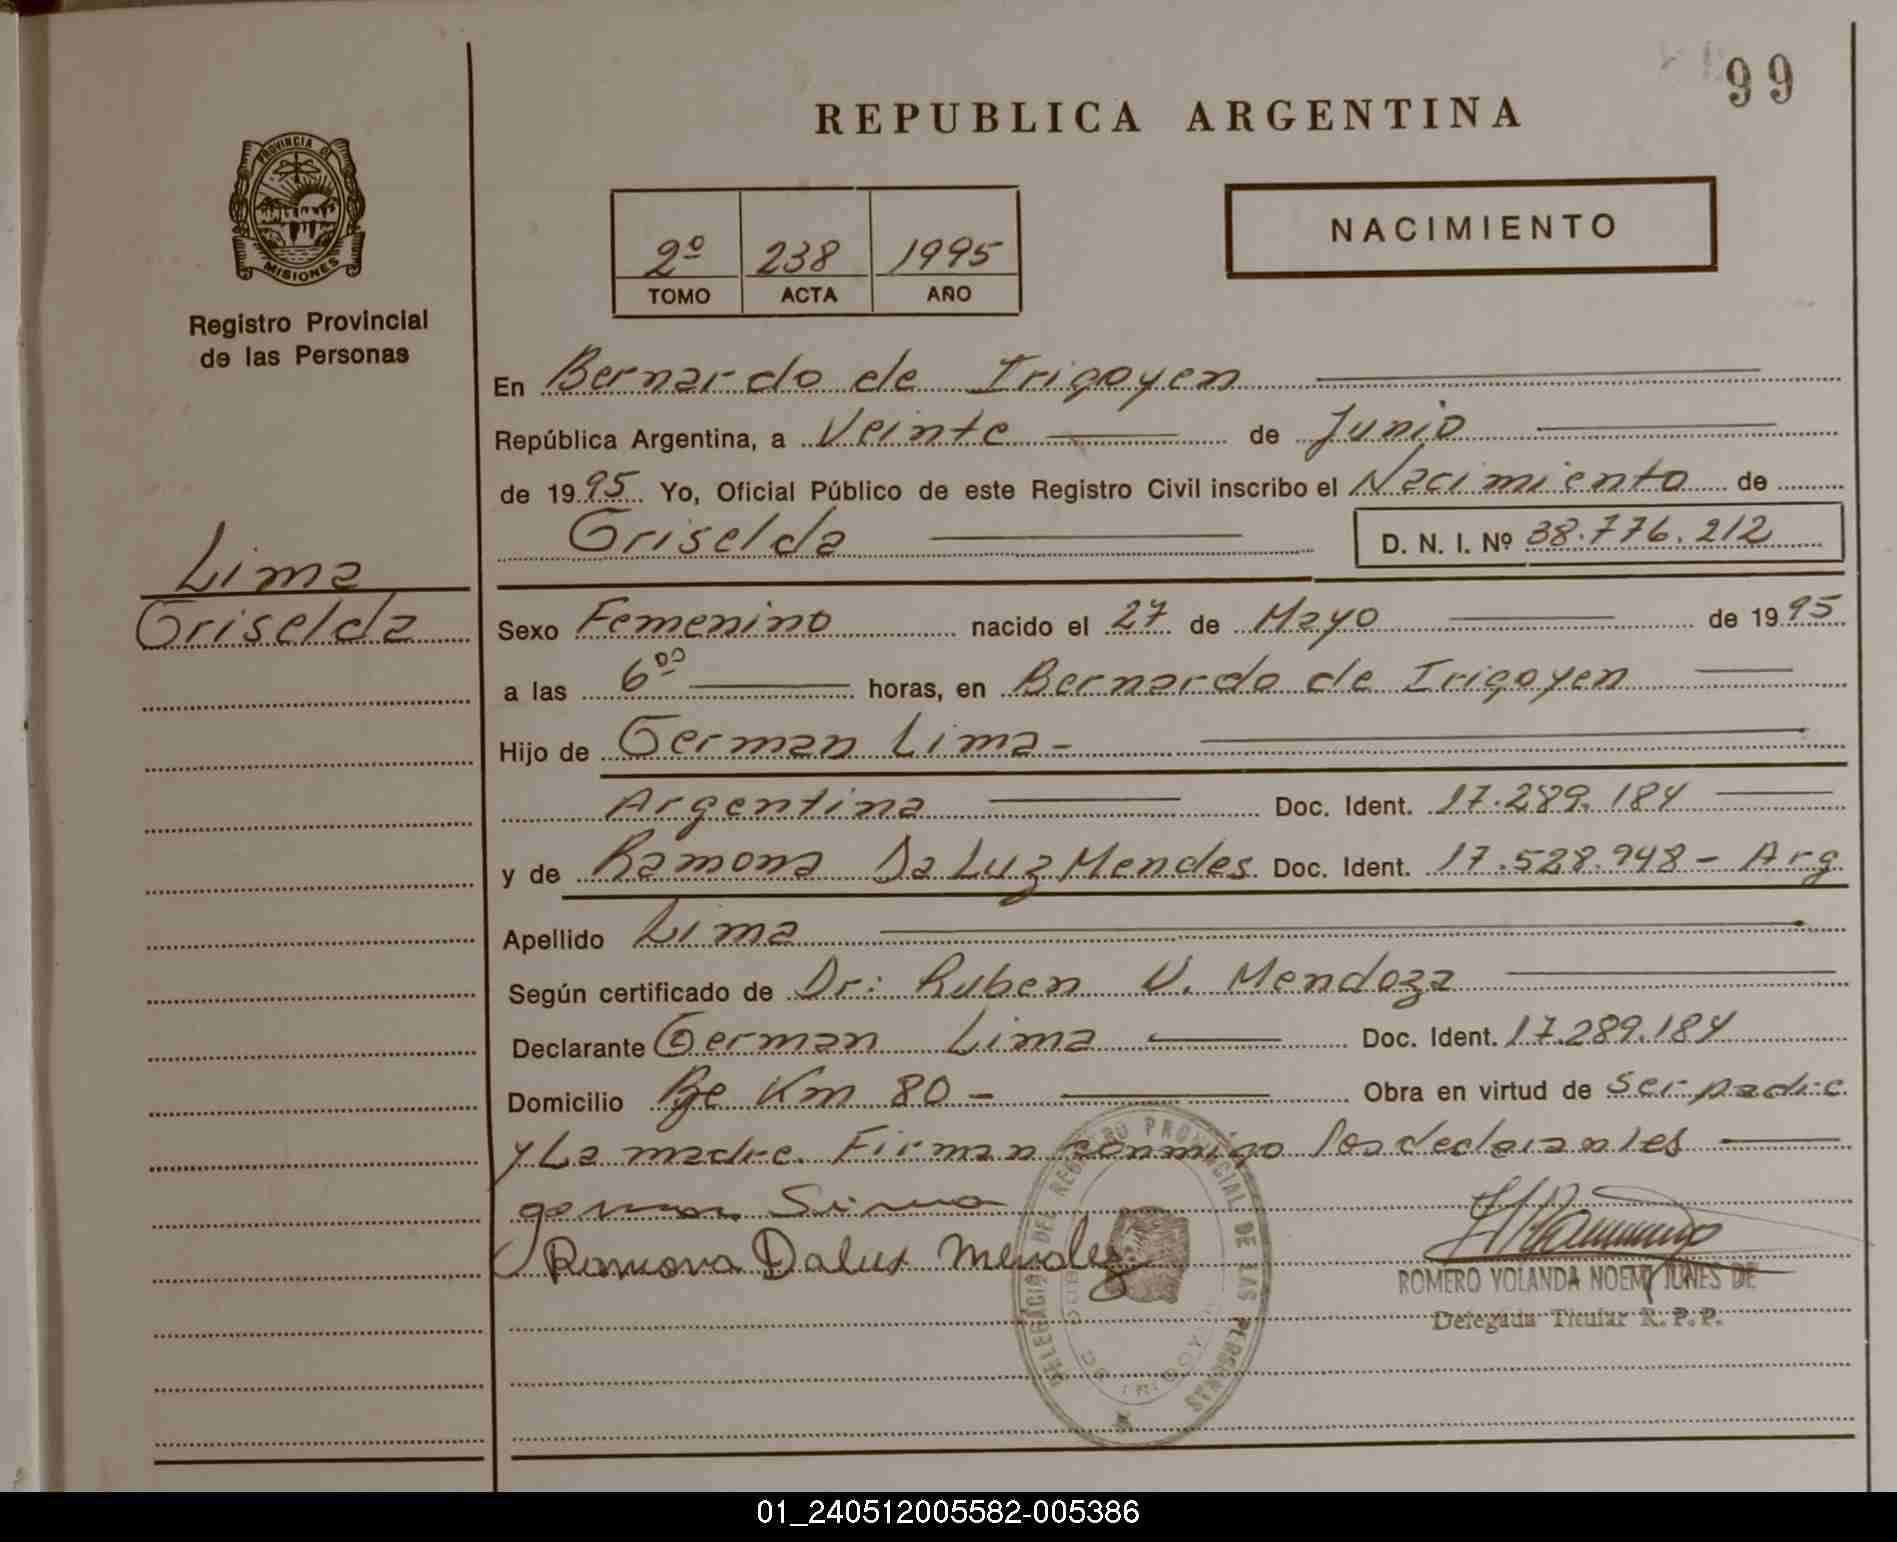 99
REPUBLICA ARGENTINA
PROVINCIA DE
MISIONES
Registro Provincial
de las Personas
NACIMIENTO
2º 238 1995
TOMO ACTA AÑO
En Bernardo de Irigoyen
República Argentina, a Veinte de Junio
de 1995 Yo, Oficial Público de este Registro Civil inscribo el Nacimiento de
Griselda D. N. I. Nº 38.776.212
Lima
Griselda
Sexo Femenino nacido el 27 de Mayo de 1995
a las 6ºº horas, en Bernardo de Irigoyen
Hijo de German Lima-
Argentina Doc. Ident. 17.289.184
y de Ramona Da Luz Mendes Doc. Ident. 17.528.948- Arg.
Apellido Lima
Según certificado de Dr: Ruben V. Mendoza
Declarante German Lima Doc. Ident. 17.289.184
Domicilio Pje Km 80- Obra en virtud de ser padre
y La madre. Firman conmigo los declarantes
german Lima
Ramona Dalux Mendez
DELEGACIÓN DEL REGISTRO PROVINCIAL DE LAS PERSONAS
ROMERO YOLANDA NOEMI JUNES DE
Delegada Titular R. P. P.
01_240512005582-005386